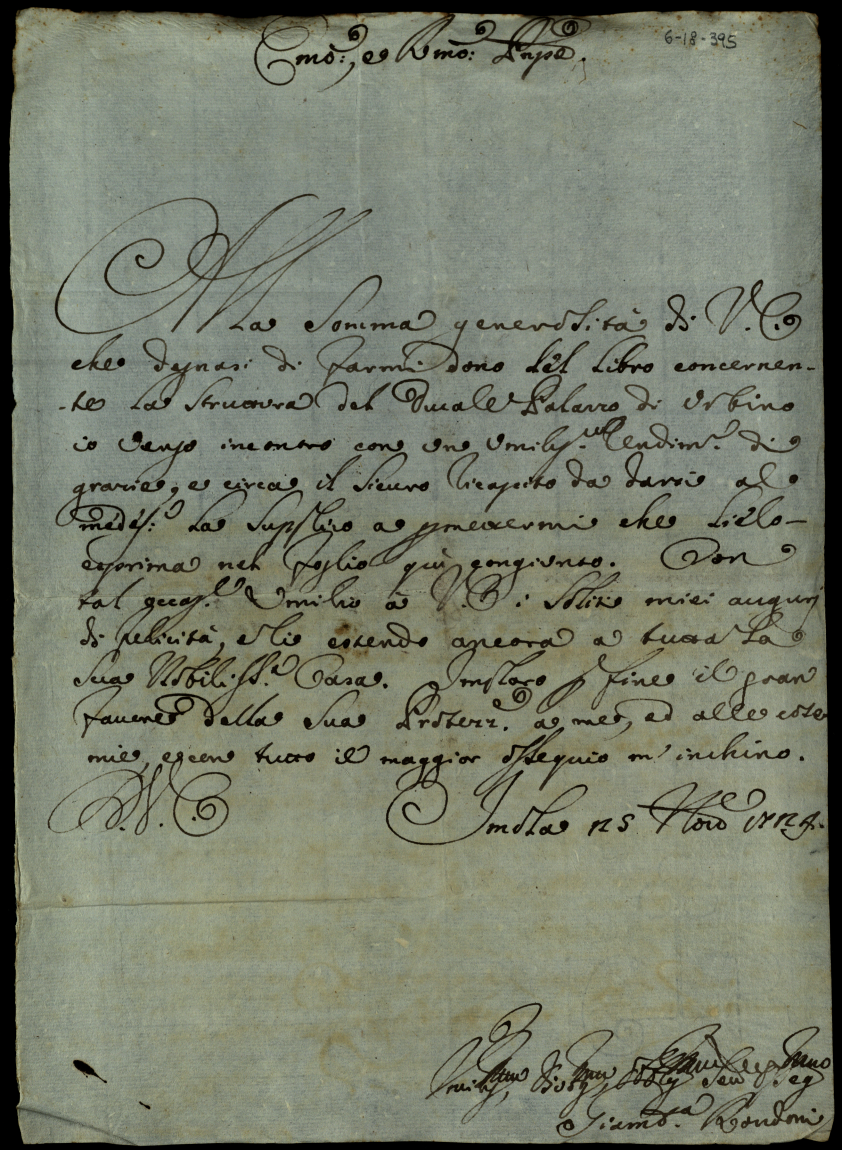 6-18-395
Emo:, e Rmo: Pnpe.
Alla Somma generosità di V. E.
che degnasi di farmi dono del Libro concernen-
-te la Struttura del Ducale Palazzo di Urbino
io vengo incontro con un Umiliss.mo Rendim.to di
grazie, e circa il sicuro ricapito da darsi al
medes:o La Supplico a permettermi che lielo
esprima nel foglio qui congiunto. Con
tal occas.e Umilio à V. E. i soliti miei augurj
di felicità, e li estendo ancora a tutta la
sua Nobiliss.a Casa. Imploro p fine il gran
favore della sua Protezz.e a me, ed alle cose
mie, e con tutto il maggior ossequio m'inchino.
D. V. E. Imola 15 Nov 1724.
Umil Devot Obblig Seru
Giamb.a Rondoni